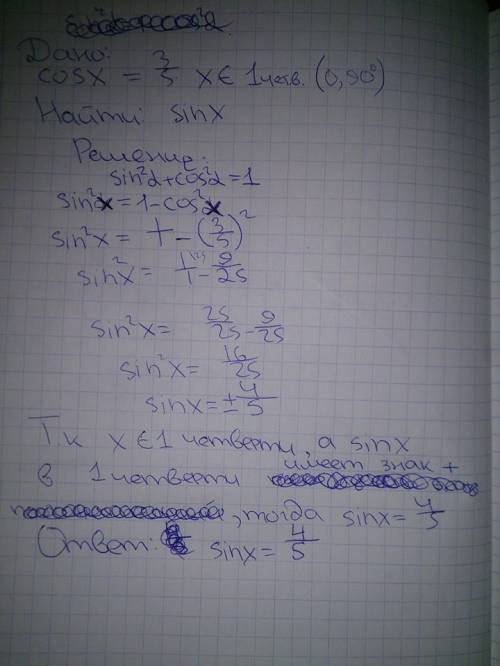 Дано:
cosx = 3/5 x∈ 1 четв. (0, 90°)
Найти: sinx
Решение:
sin²α+cos²α=1
sin²x=1-cos²x
sin²x= 1-(3/5)²
sin²x= 1/1 - 9/25
sin²x= 25/25 - 9/25
sin²x= 16/25
sinx=± 4/5
Т.к x∈1 четверти, а sinx
в 1 четверти имеет знак +
, тогда sinx= 4/5
Ответ: sinx= 4/5